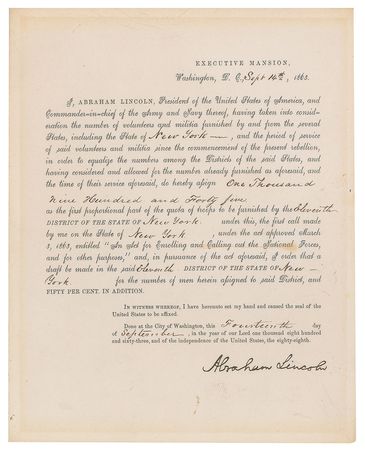 EXECUTIVE MANSION,
Washington, D. C., Sept 14th, 1863.
I, ABRAHAM LINCOLN, President of the United States of America, and
Commander-in-chief of the Army and Navy thereof, having taken into consid-
eration the number of volunteers and militia furnished by and from the several
States, including the State of New York —, and the period of service
of said volunteers and militia since the commencement of the present rebellion,
in order to equalize the numbers among the Districts of the said States, and
having considered and allowed for the number already furnished as aforesaid, and
the time of their service aforesaid, do hereby assign One Thousand
Nine Hundred and Forty five
as the first proportional part of the quota of troops to be furnished by the Eleventh
DISTRICT OF THE STATE OF New York under this, the first call made
by me on the State of New York , under the act approved March
3, 1863, entitled "An Act for Enrolling and Calling out the National Forces,
and for other purposes," and, in pursuance of the act aforesaid, I order that a
draft be made in the said Eleventh DISTRICT OF THE STATE OF New —
York for the number of men herein assigned to said District, and
FIFTY PER CENT. IN ADDITION.
IN WITNESS WHEREOF, I have hereunto set my hand and caused the seal of the
United States to be affixed.
Done at the City of Washington, this Fourteenth day
of September, in the year of our Lord one thousand eight hundred
and sixty-three, and of the independence of the United States, the eighty-eighth.
Abraham Lincoln